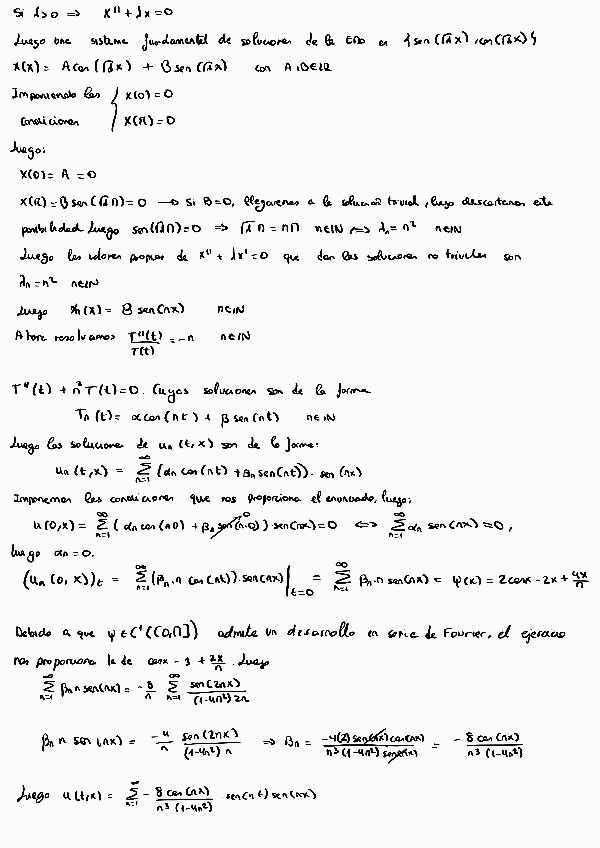 Si λ>0 ⇒ X'' + λx = 0
Luego una sistema fundamental de soluciones de la EDO es {sen(√λ x), cos(√λ x)}
X(x) = A cos(√λ x) + B sen(√λ x) con A,B∈ℝ
Imponiendo las { X(0)=0
condiciones { X(π)=0
Luego:
X(0) = A = 0
X(π) = B sen(√λ π) = 0 → Si B=0, llegaremos a la solución trivial, luego descartamos esta
posibilidad. Luego sen(√λ π) = 0 ⇒ √λ π = nπ n∈ℕ ⟺ λn = n² n∈ℕ
Luego los valores propios de X'' + λx' = 0 que dan las soluciones no triviales son
λn = n² n∈ℕ
Luego Xn(x) = B sen(nx) n∈ℕ
Ahora resolvamos T''(t)/T(t) = -n n∈ℕ
T''(t) + n²T(t) = 0. Cuyas soluciones son de la forma
Tn(t) = α cos(nt) + β sen(nt) n∈ℕ
Luego las soluciones de un(t,x) son de la forma:
un(t,x) = ∑_{n=1}^∞ (αn cos(nt) + βn sen(nt)) · sen(nx)
Imponemos las condiciones que nos proporciona el enunciado, luego:
u(0,x) = ∑_{n=1}^∞ (αn cos(n0) + βn sen(n·0)) sen(nx) = 0 ⟺ ∑_{n=1}^∞ αn sen(nx) = 0,
luego αn = 0.
(un(0,x))t = ∑_{n=1}^∞ (βn·n cos(nt)) · sen(nx) |_{t=0} = ∑_{n=1}^∞ βn·n sen(nx) = ψ(x) = 2cosx - 2x + 4x/π
Debido a que ψ∈C¹([0,π]) admite un desarrollo en serie de Fourier, el ejercicio
nos proporciona la de cosx - 1 + 2x/π. Luego
∑_{n=1}^∞ βn n sen(nx) = -8/π ∑_{n=1}^∞ sen(2nx)/((1-4n²)2n)
βn n sen(nx) = -4/π sen(2nx)/((1-4n²)n) ⇒ βn = -4(2)sen(nx)cos(nx)/(n³(1-4n²)sen(nx)) = -8cos(nx)/(n³(1-4n²))
Luego u(t,x) = ∑_{n=1}^∞ - 8cos(nx)/(n³(1-4n²)) · sen(nt) sen(nx)